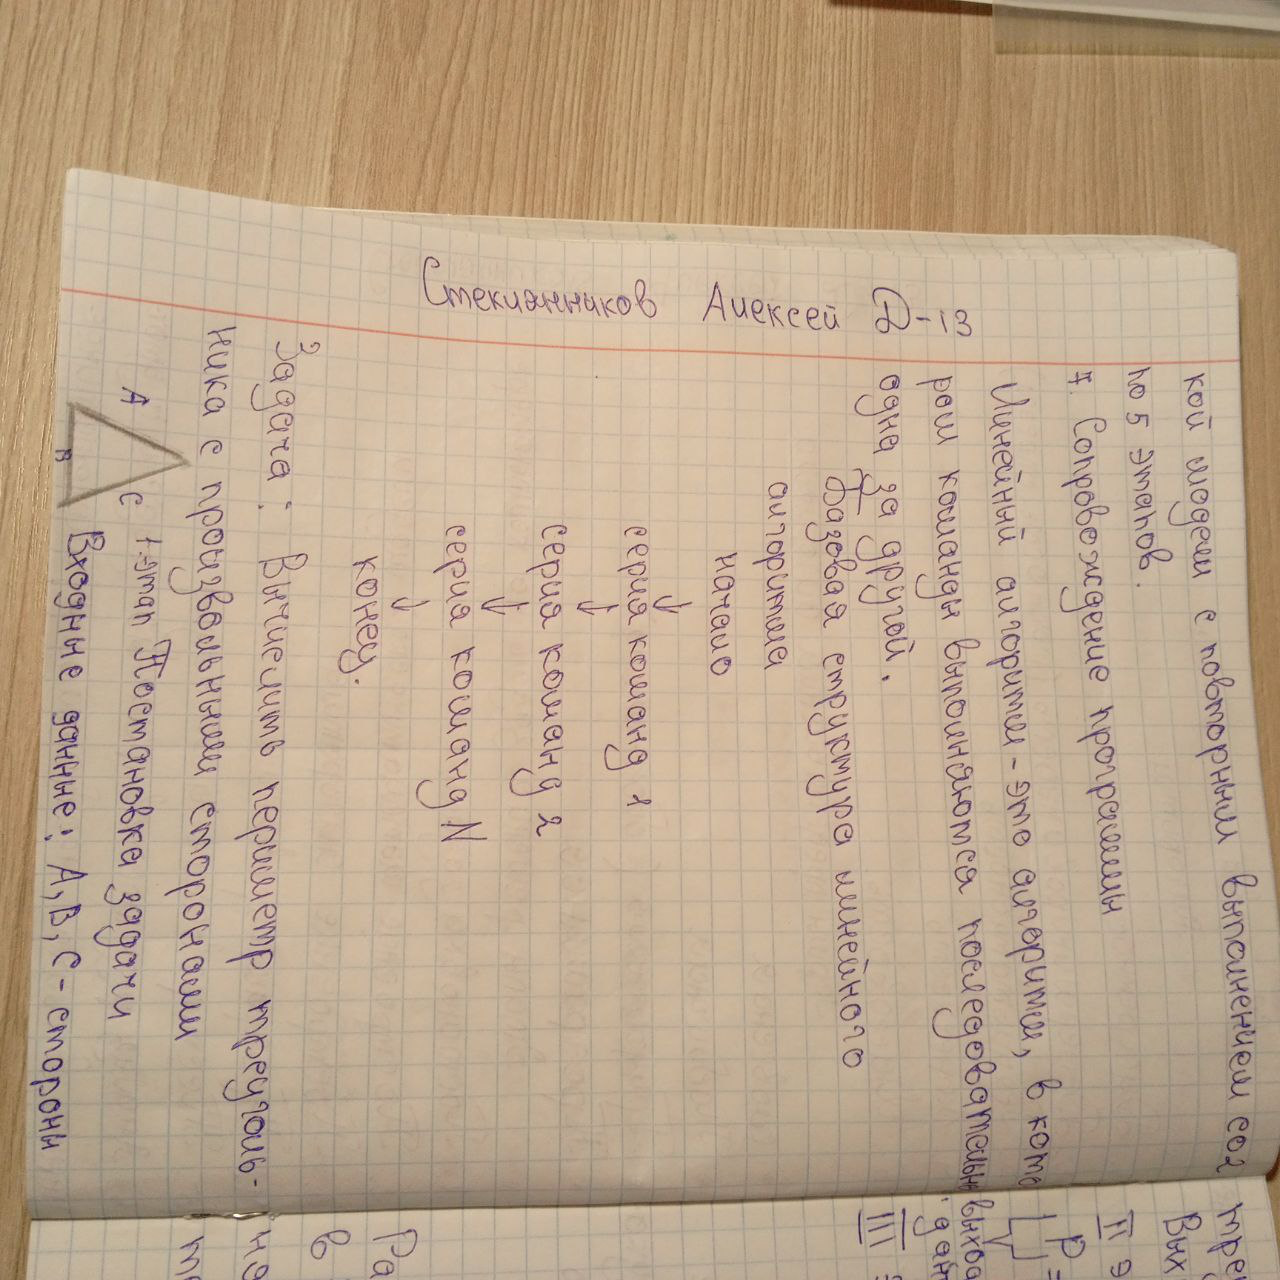 Стеклянников Алексей Д-13
кой модели с повторным выполнением сог
по 5 этапов.
7. Сопровождение программы
Линейный алгоритм - это алгоритм, в кото
ром команды выполняются последовательн
одна за другой.
Базовая структура линейного
алгоритма
начало
↓
серия команд 1
↓
серия команд 2
↓
серия команд N
↓
конец.
Задача: Вычислить периметр треуголь-
ника с произвольными сторонами
A C 1-этап Постановка задачи
B Входные данные: A, B, C - стороны
тре
Вых
II э
P =
выхо
дан
III э
Ра
в
но